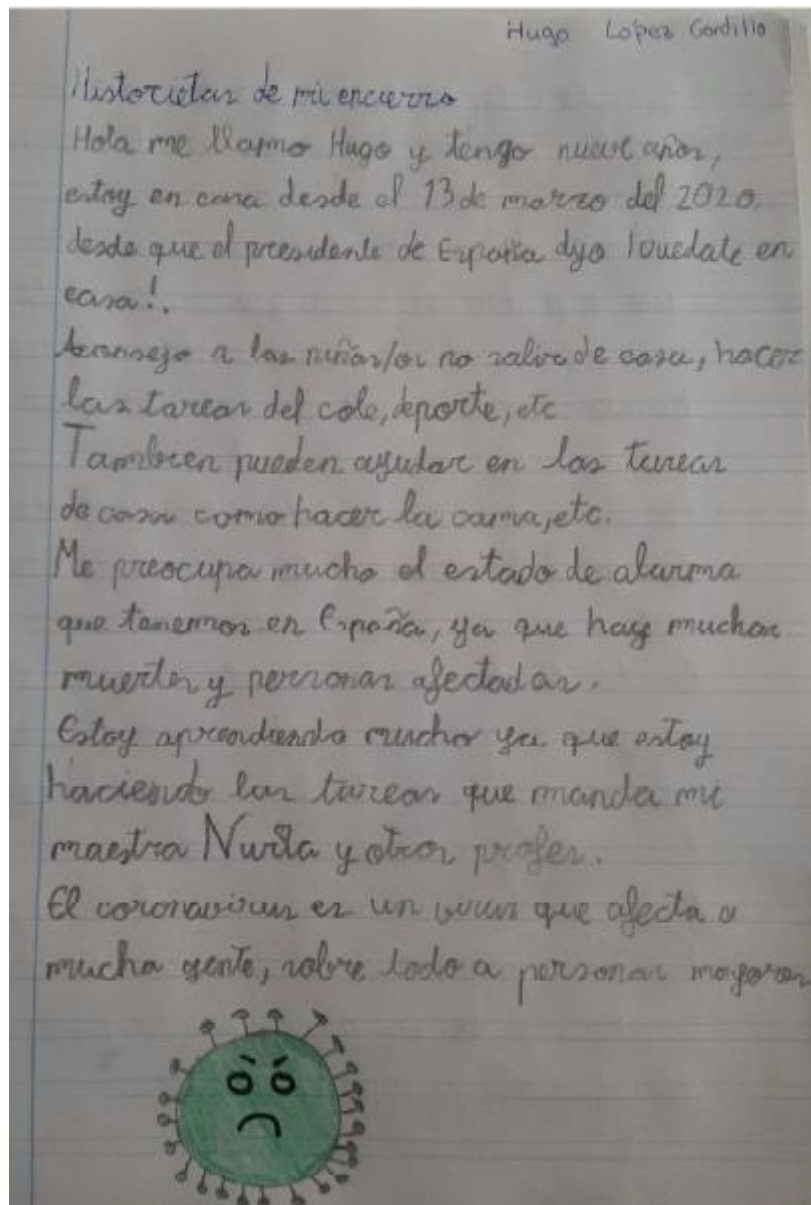 Hugo López Gordillo
Historietas de mi encierro
Hola me llamo Hugo y tengo nueve años,
estoy en casa desde el 13 de marzo del 2020,
desde que el presidente de España dijo !Quedate en
casa!.
Aconsejo a las niñas/os no salir de casa, hacer
las tareas del cole, deporte, etc
Tambien pueden ayudar en las tareas
de casa como hacer la cama, etc.
Me preocupa mucho el estado de alarma
que tenemos en España, ya que hay muchas
muertes y personas afectadas.
Estoy aprendiendo mucho ya que estoy
haciendo las tareas que manda mi
maestra Nuria y otros profes.
El coronavirus es un virus que afecta a
mucha gente, sobre todo a personas mayores.